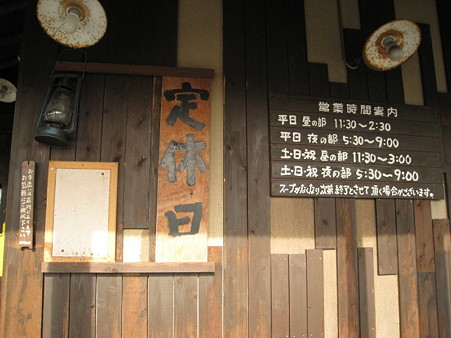 定休日
営業時間案内
平日 昼の部 11:30〜2:30
平日 夜の部 5:30〜9:00
土・日・祝 昼の部 11:30〜3:00
土・日・祝 夜の部 5:30〜9:00
スープがなくなり次第終了とさせて頂く場合がございます。